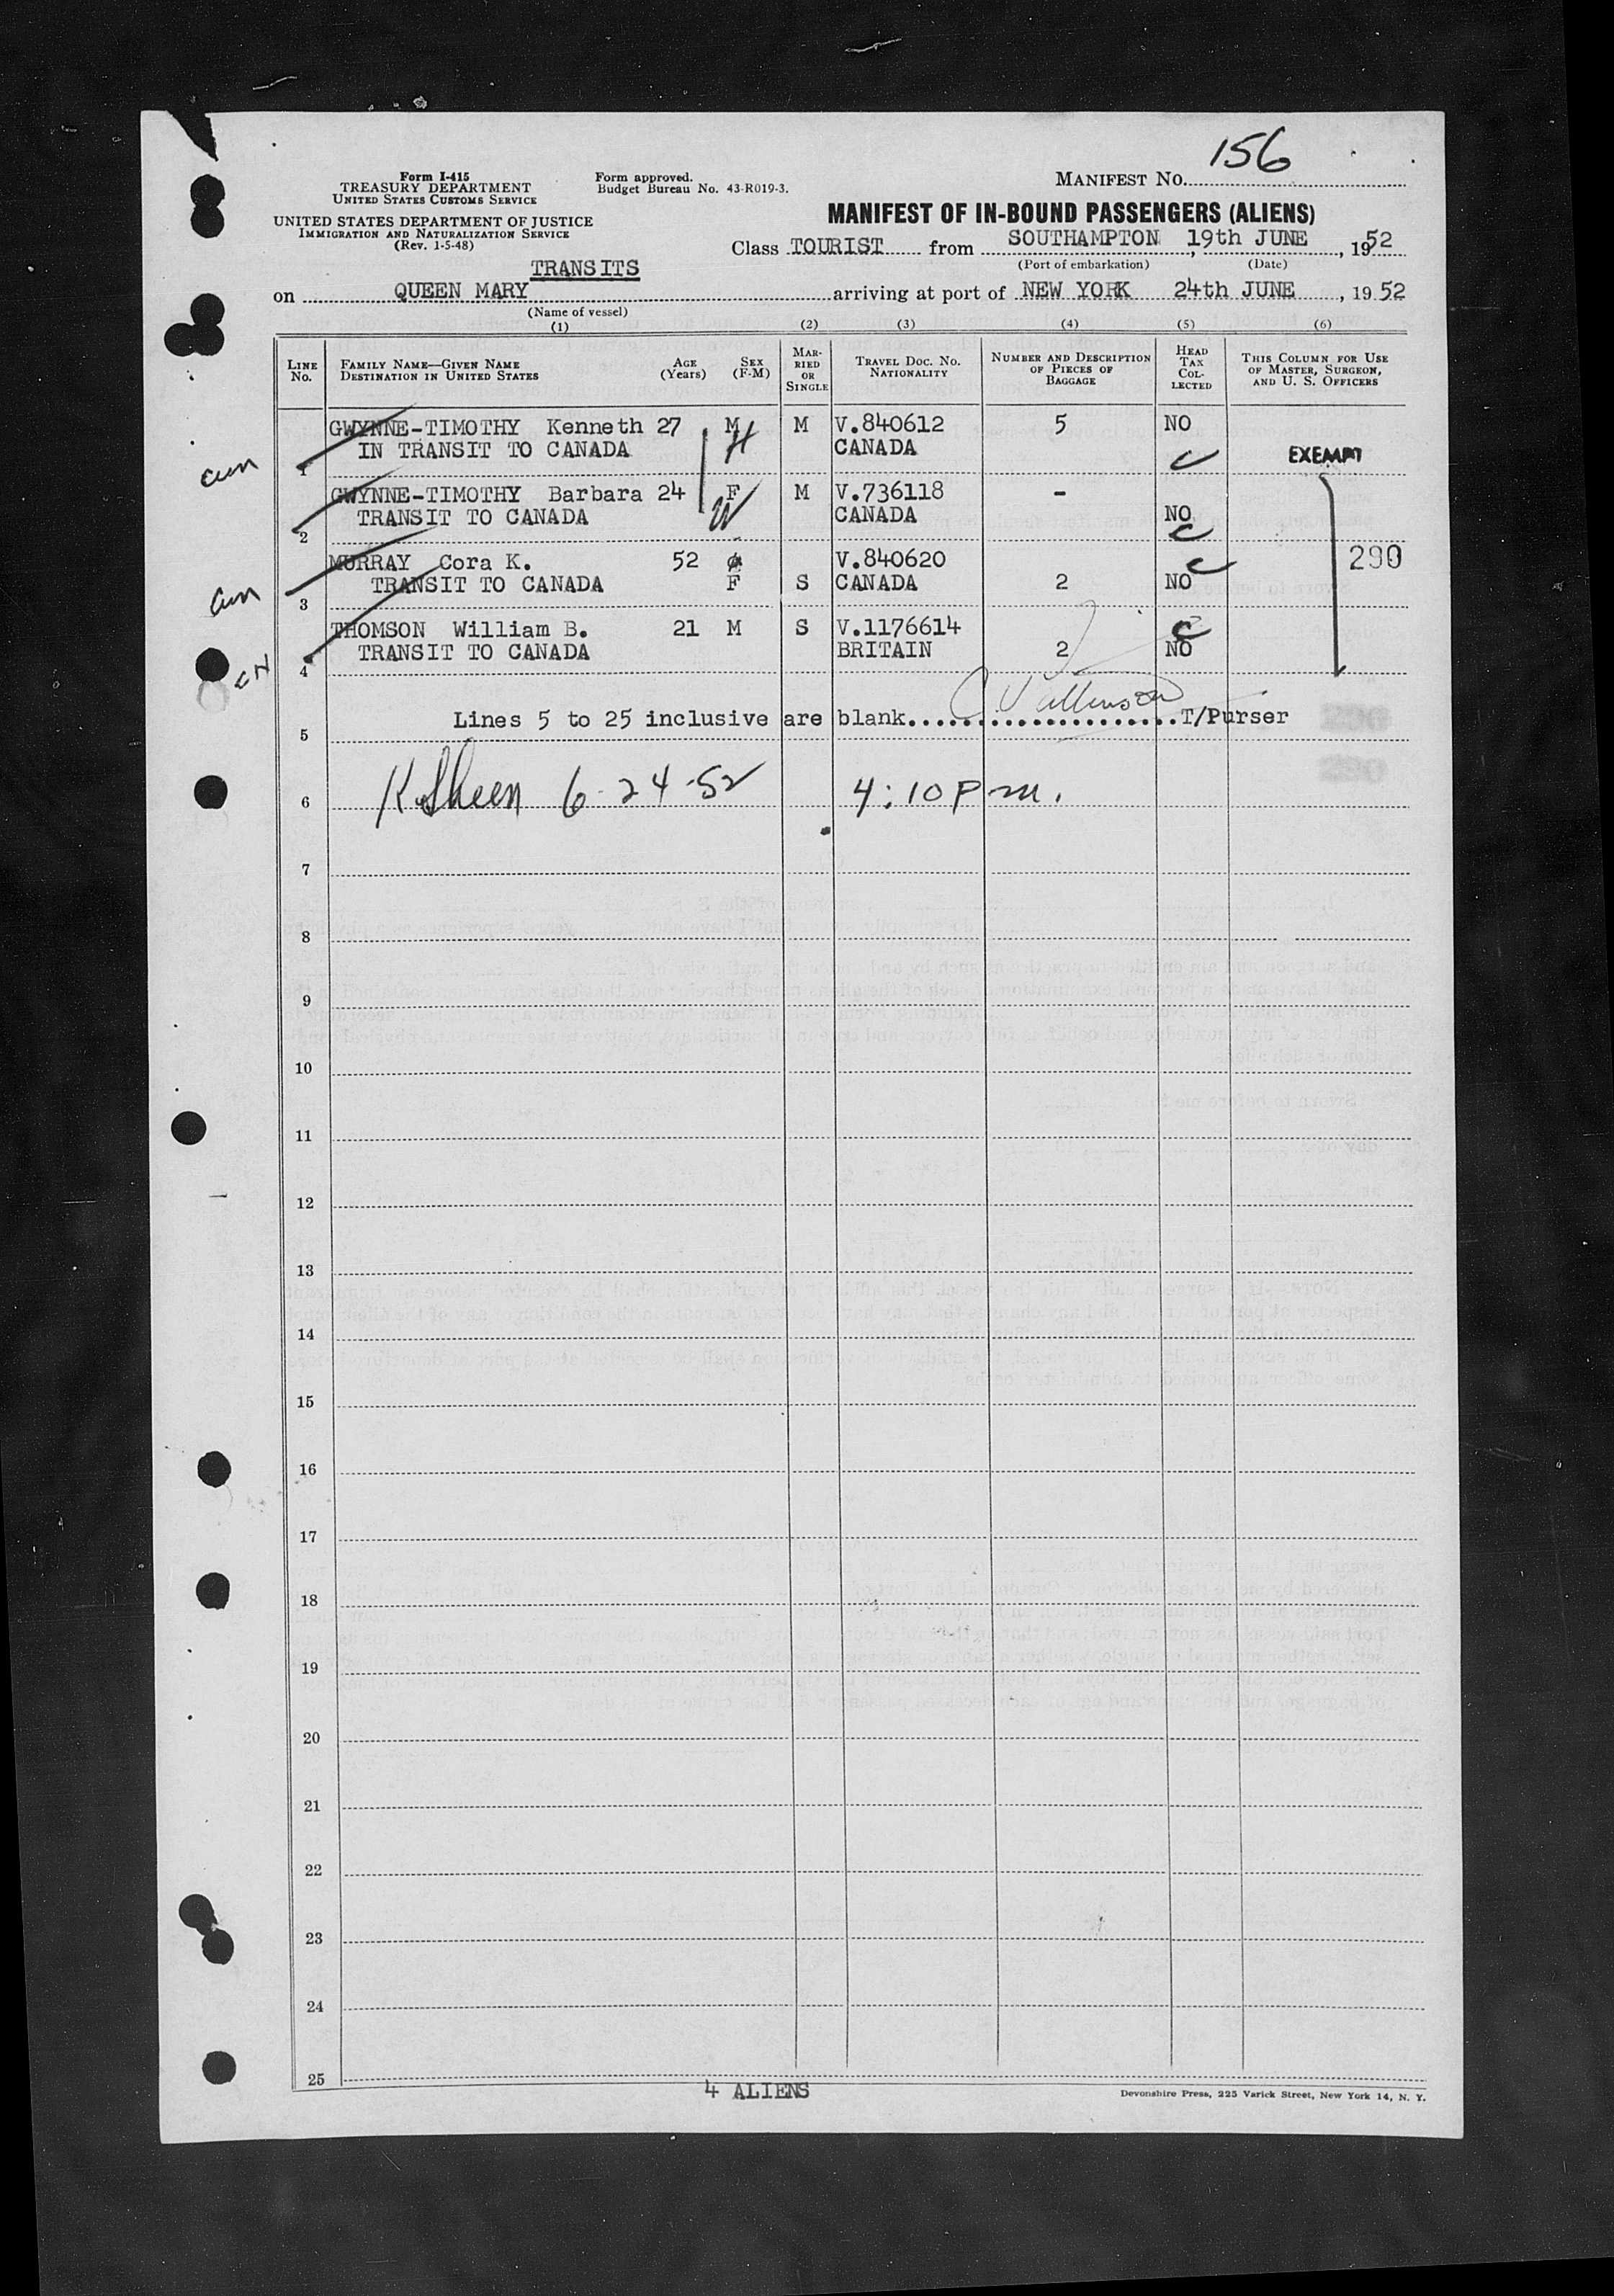 156
Form I-415
TREASURY DEPARTMENT
UNITED STATES CUSTOMS SERVICE
UNITED STATES DEPARTMENT OF JUSTICE
IMMIGRATION AND NATURALIZATION SERVICE
(Rev. 1-5-48)
Form approved.
Budget Bureau No. 43-R019-3.
MANIFEST No.
MANIFEST OF IN-BOUND PASSENGERS (ALIENS)
Class TOURIST from SOUTHAMPTON, 19th JUNE, 1952
(Port of embarkation) (Date)
TRANSITS
on QUEEN MARY arriving at port of NEW YORK 24th JUNE, 1952
(Name of vessel)
(1) (2) (3) (4) (5) (6)
LINE No. FAMILY NAME—GIVEN NAME DESTINATION IN UNITED STATES AGE (Years) SEX (F-M) MARRIED OR SINGLE TRAVEL DOC. NO. NATIONALITY NUMBER AND DESCRIPTION OF PIECES OF BAGGAGE HEAD TAX COLLECTED THIS COLUMN FOR USE OF MASTER, SURGEON, AND U. S. OFFICERS
GWYNNE-TIMOTHY Kenneth 27 M M V.840612 5 NO
1 IN TRANSIT TO CANADA H CANADA C EXEMPT
GWYNNE-TIMOTHY Barbara 24 F M V.736118 -
2 TRANSIT TO CANADA W CANADA NO C
MURRAY Cora K. 52 V.840620 C 290
3 TRANSIT TO CANADA F S CANADA 2 NO
THOMSON William B. 21 M S V.1176614 C
4 TRANSIT TO CANADA BRITAIN 2 NO
5 Lines 5 to 25 inclusive are blank. T/Purser
6 K. Sheen 6-24-52 4:10 P m.
7
8
9
10
11
12
13
14
15
16
17
18
19
20
21
22
23
24
25
4 ALIENS
Devonshire Press, 225 Varick Street, New York 14, N. Y.